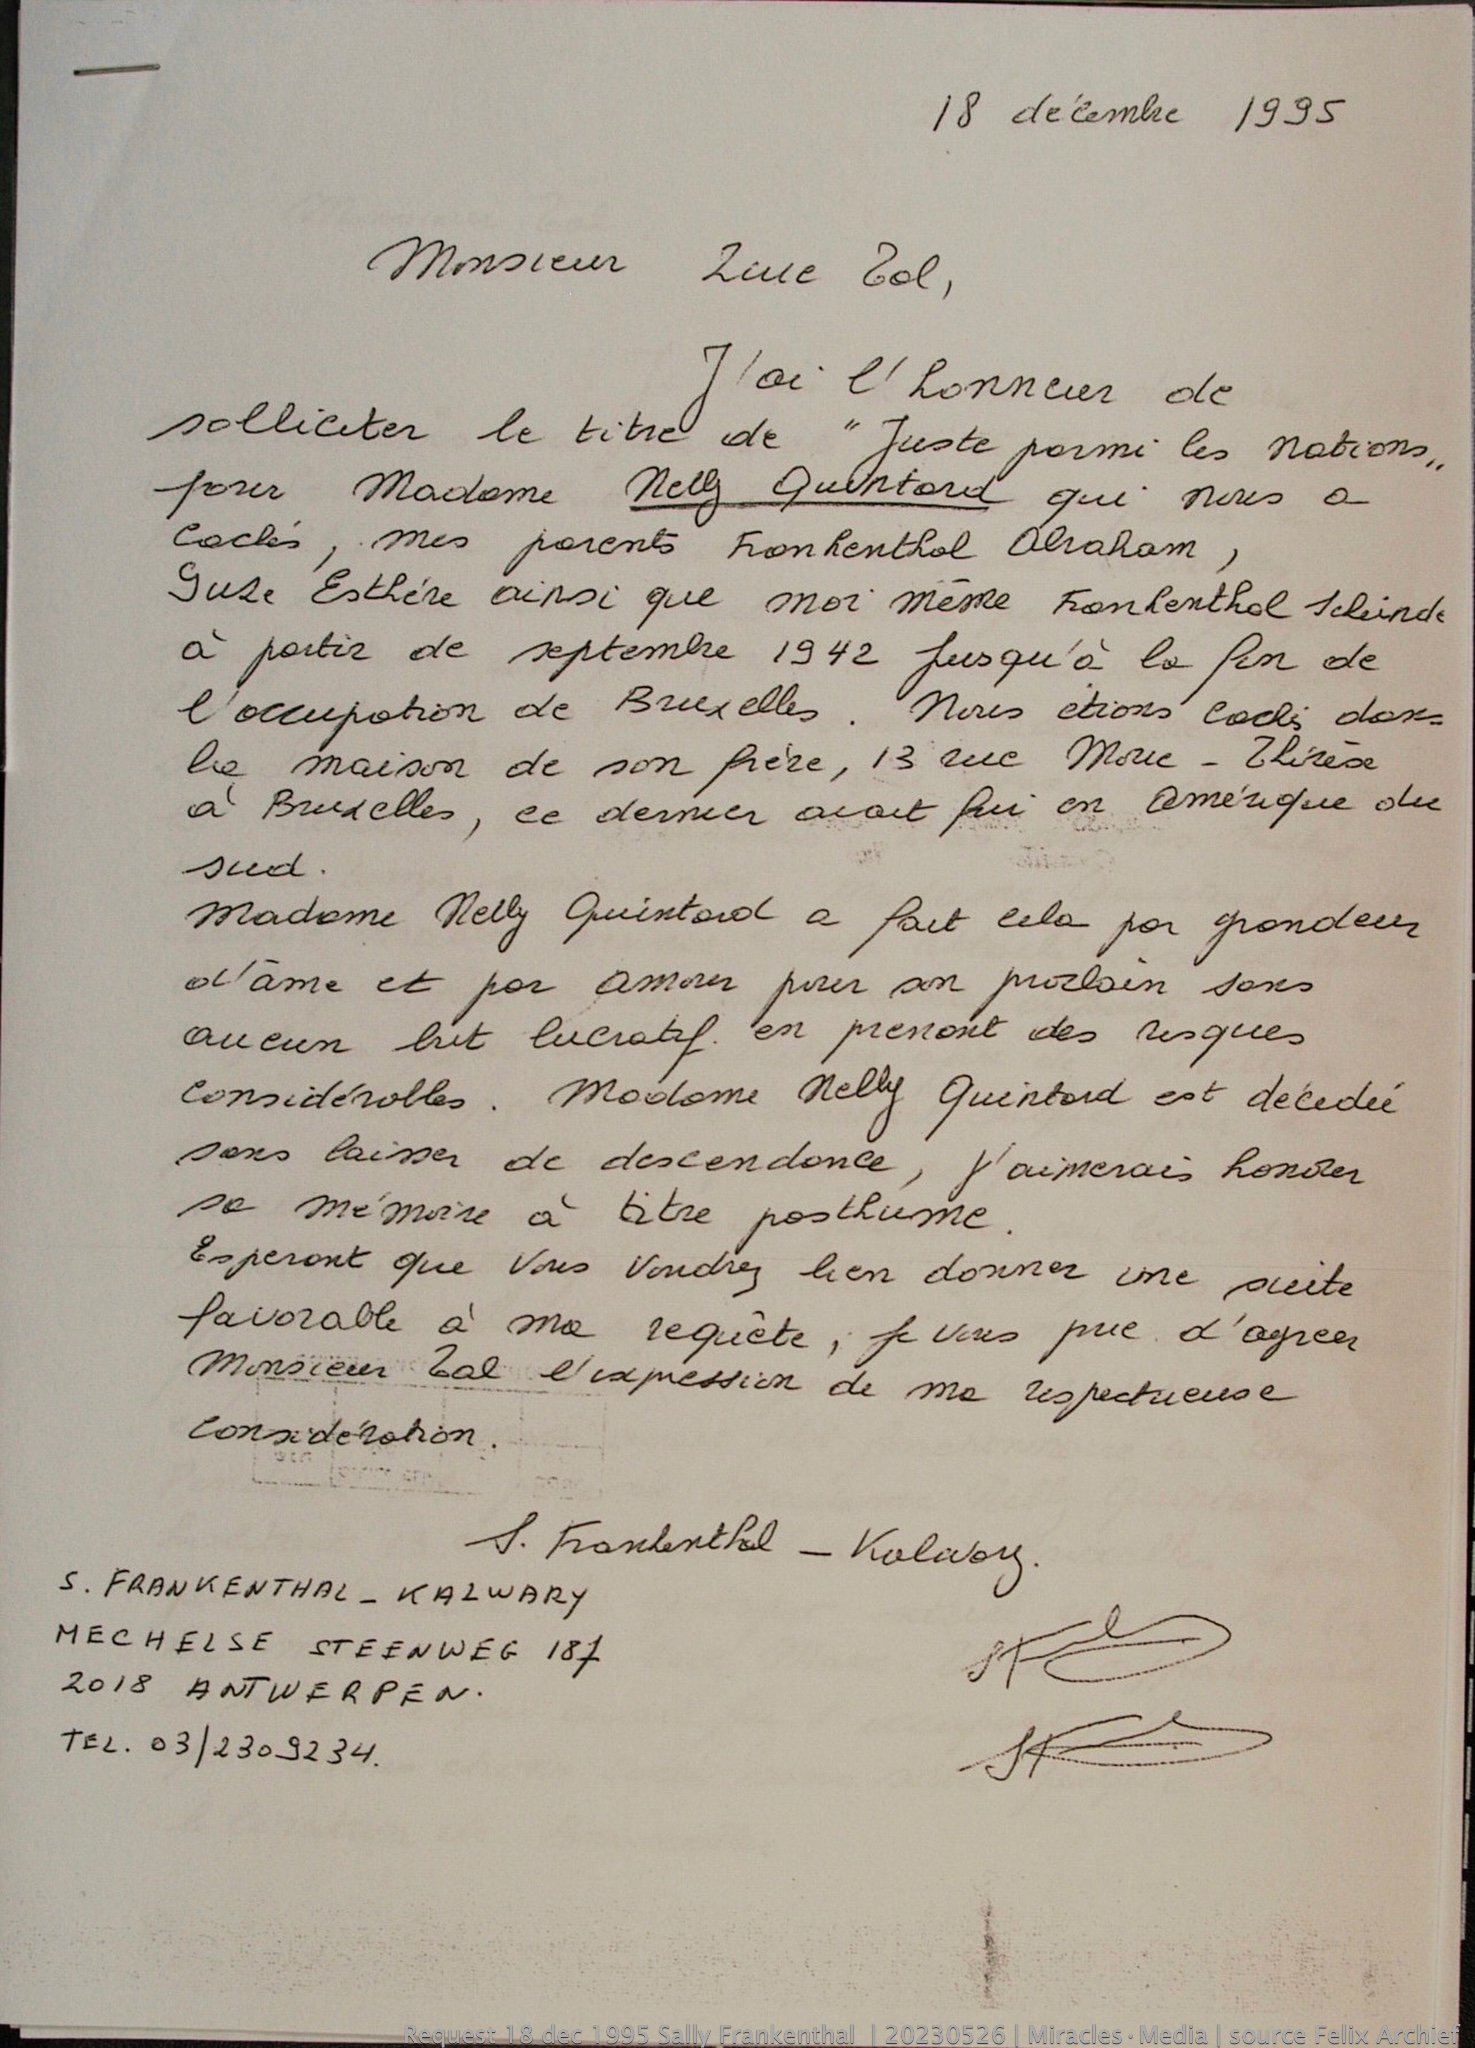 18 décembre 1995
Monsieur Luc Tal,
J'ai l'honneur de
solliciter le titre de "Juste parmi les nations"
pour Madame Nelly Quintard qui nous a
cachés, mes parents Frankenthal Abraham,
Esthère ainsi que moi même Frankenthal Scheinde
à partir de septembre 1942 jusqu'à la fin de
l'occupation de Bruxelles. Nous étions cachés dans
la maison de son frère, 13 rue Marie-Thérèse
à Bruxelles, ce dernier avait fui en Amérique du
sud.
Madame Nelly Quintard a fait cela par grandeur
d'âme et par amour pour son prochain sans
aucun but lucratif en prenant des risques
considérables. Madame Nelly Quintard est décédée
sans laisser de descendance, j'aimerais honorer
sa mémoire à titre posthume.
Esperant que vous voudrez bien donner une suite
favorable à ma requête, je vous prie d'agreer
Monsieur Tal l'expression de ma respectueuse
considération.
S. Frankenthal - Kalwary.
S. FRANKENTHAL - KALWARY
MECHELSE STEENWEG 187
2018 ANTWERPEN.
TEL. 03/2309234.
Request 18 dec 1995 Sally Frankenthal | 20230526 | Miracles·Media | source Felix Archief